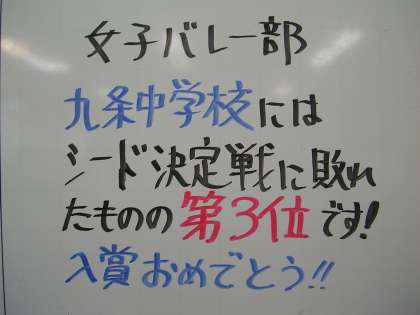 女子バレー部
九条中学校には
シード決定戦に敗れ
たものの第3位です!
入賞おめでとう!!